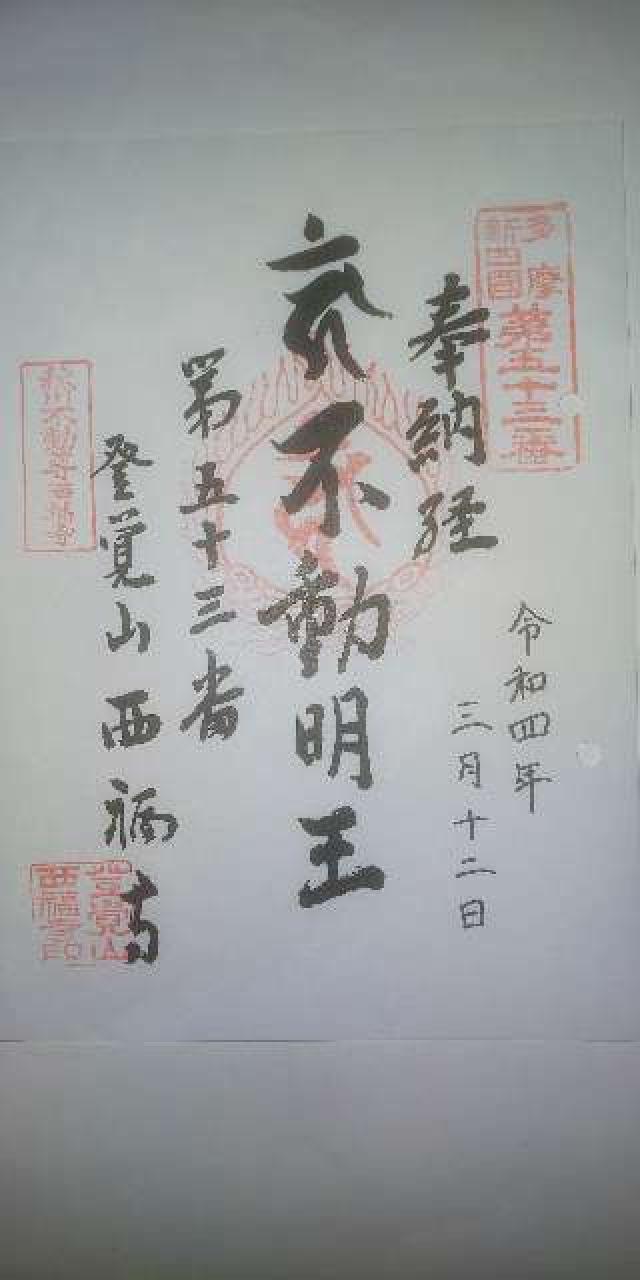 多摩
新四国
第五十三番
奉納経
令和四年
三月十二日
不動明王
第五十三番
登覚山西福寺
登覚山
西福寺印